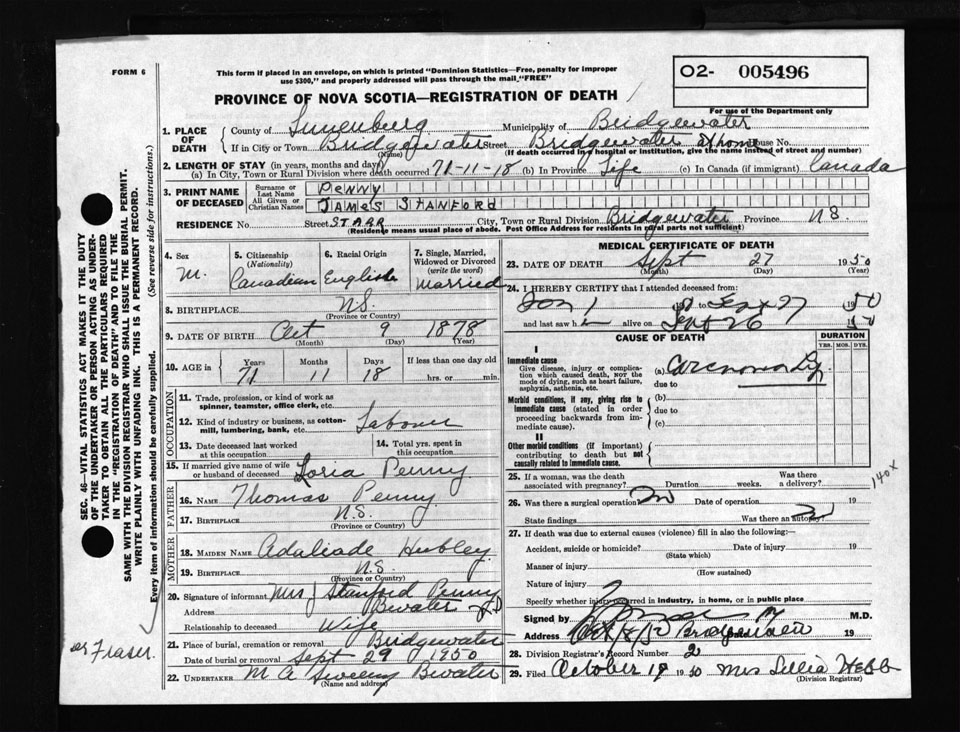 FORM 6
This form if placed in an envelope, on which is printed "Dominion Statistics—Free, penalty for improper
use $300," and properly addressed will pass through the mail, "FREE"
O2- 005496
For use of the Department only
PROVINCE OF NOVA SCOTIA—REGISTRATION OF DEATH
SEC. 46—VITAL STATISTICS ACT MAKES IT THE DUTY
OF THE UNDERTAKER OR PERSON ACTING AS UNDER-
TAKER TO OBTAIN ALL THE PARTICULARS REQUIRED
IN THE "REGISTRATION OF DEATH" AND TO FILE THE
SAME WITH THE DIVISION REGISTRAR WHO SHALL ISSUE THE BURIAL PERMIT.
WRITE PLAINLY WITH UNFADING INK. THIS IS A PERMANENT RECORD.
Every item of information should be carefully supplied. (See reverse side for instructions.)
1. PLACE OF DEATH
County of Lunenburg Municipality of Bridgewater
If in City or Town Bridgewater Street Bridgewater Home House No.
(Name) (If death occurred in hospital or institution, give the name instead of street and number)
2. LENGTH OF STAY (in years, months and days)
(a) In City, Town or Rural Division where death occurred 71-11-18 (b) In Province Life (c) In Canada (if immigrant) Canada
3. PRINT NAME OF DECEASED
Surname or Last Name PENNY
All Given or Christian Names JAMES STANFORD
RESIDENCE No. Street STARR City, Town or Rural Division Bridgewater Province NS.
(Residence means usual place of abode. Post Office Address for residents in rural parts not sufficient)
4. Sex M.
5. Citizenship (Nationality) Canadian
6. Racial Origin English
7. Single, Married, Widowed or Divorced (write the word) Married
8. BIRTHPLACE NS.
(Province or Country)
9. DATE OF BIRTH Oct 9 1878
(Month) (Day) (Year)
10. AGE in Years 71 Months 11 Days 18 If less than one day old hrs. or min.
OCCUPATION
11. Trade, profession, or kind of work as
spinner, teamster, office clerk, etc.
12. Kind of industry or business, as cotton-
mill, lumbering, bank, etc. Laborer
13. Date deceased last worked
at this occupation
14. Total yrs. spent in
this occupation
15. If married give name of wife
or husband of deceased Loria Penny
FATHER
16. NAME Thomas Penny
17. BIRTHPLACE N.S.
(Province or Country)
MOTHER
18. MAIDEN NAME Adaliade Hubley
19. BIRTHPLACE N.S.
(Province or Country)
20. Signature of informant Mrs J Stanford Penny
Address Bwater
Relationship to deceased Wife
21. Place of burial, cremation or removal Bridgewater
Date of burial or removal Sept 29 1950
22. UNDERTAKER M A Sweeny Bwater
(Name and address)
Fraser.
MEDICAL CERTIFICATE OF DEATH
23. DATE OF DEATH Sept 27 1950
(Month) (Day) (Year)
24. I HEREBY CERTIFY that I attended deceased from:
Jan 1 to Sept 27 1950
and last saw h alive on Sept 26 50
CAUSE OF DEATH
DURATION
YRS. MOS. DYS.
I
Immediate cause
Give disease, injury or complica-
tion which caused death, NOT the
mode of dying, such as heart failure,
asphyxia, asthenia, etc.
(a)
due to
Morbid conditions, if any, giving rise to
immediate cause (stated in order
proceeding backwards from im-
mediate cause).
(b)
due to
(c)
II
Other morbid conditions (if important)
contributing to death but not
causally related to immediate cause.
25. If a woman, was the death
associated with pregnancy? Duration weeks. Was there a delivery?
140x
26. Was there a surgical operation? No Date of operation 19
State findings Was there an autopsy? No
27. If death was due to external causes (violence) fill in also the following:—
Accident, suicide or homicide? Date of injury 19
(State which)
Manner of injury
(How sustained)
Nature of injury
Specify whether injury occurred in industry, in home, or in public place
Signed by M.D.
Address Bridgewater 19
28. Division Registrar's Record Number 2
29. Filed October 19 1950 Mrs Lillia Hebb
(Division Registrar)